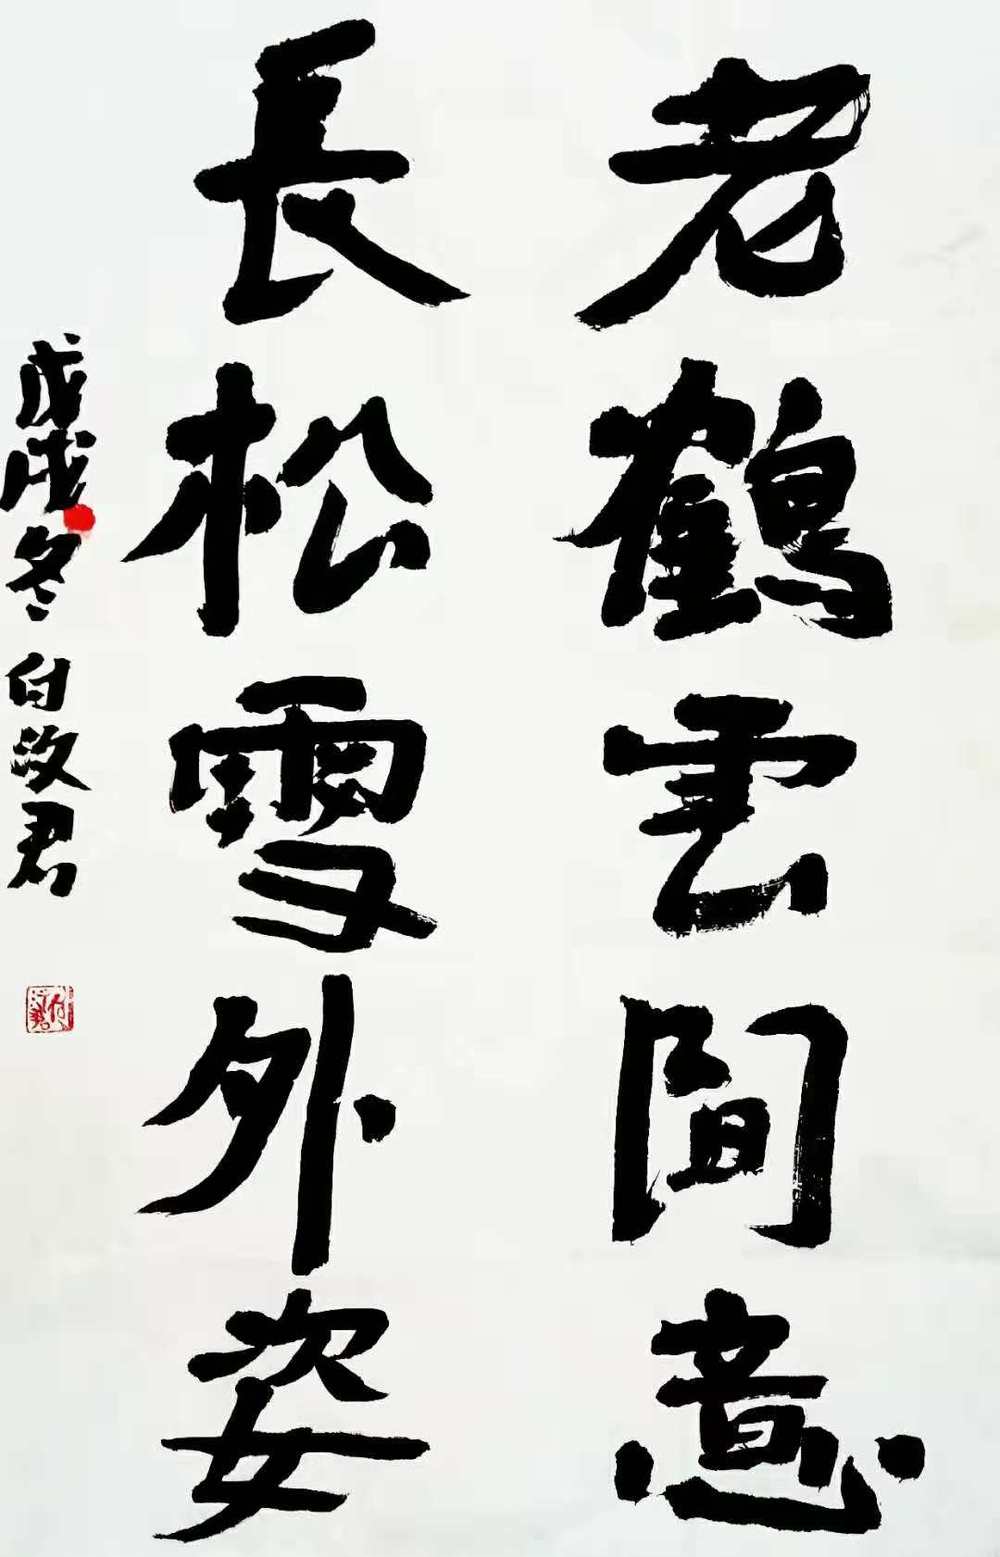 老鶴雲間意
長松雪外姿
戊戌冬白汝君